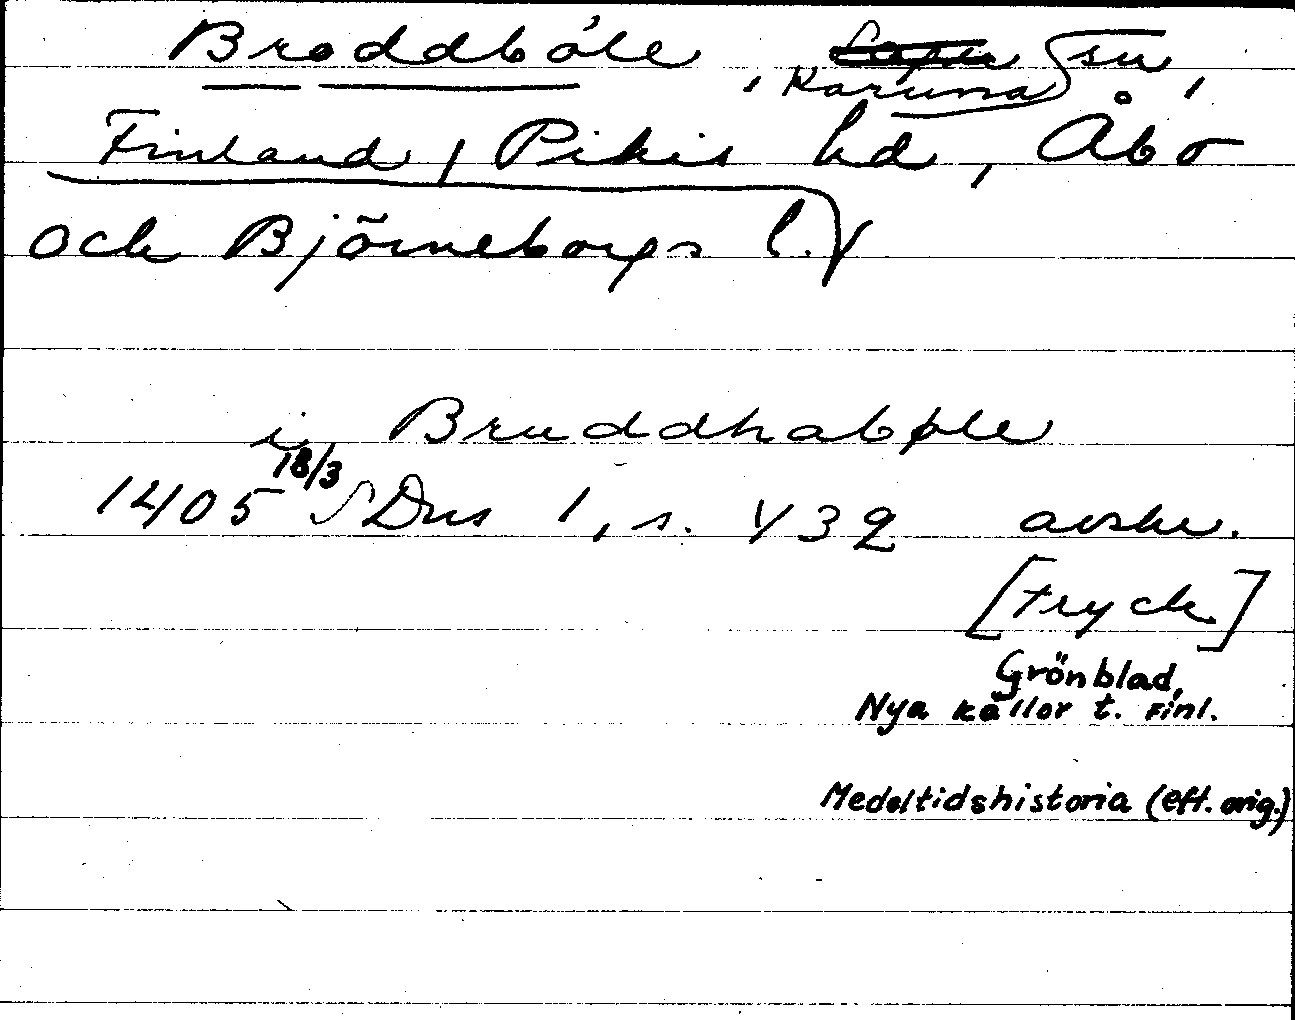 Broddböle, Karuna sn,
Finland, Pikis hd, Åbo
och Björneborgs l.
i Bruddhabøle
1405 18/3 SDns 1, s. 432 avskr.
[tryck]
Grönblad,
Nya källor t. Finl.
Medeltidshistoria (eft. orig.)